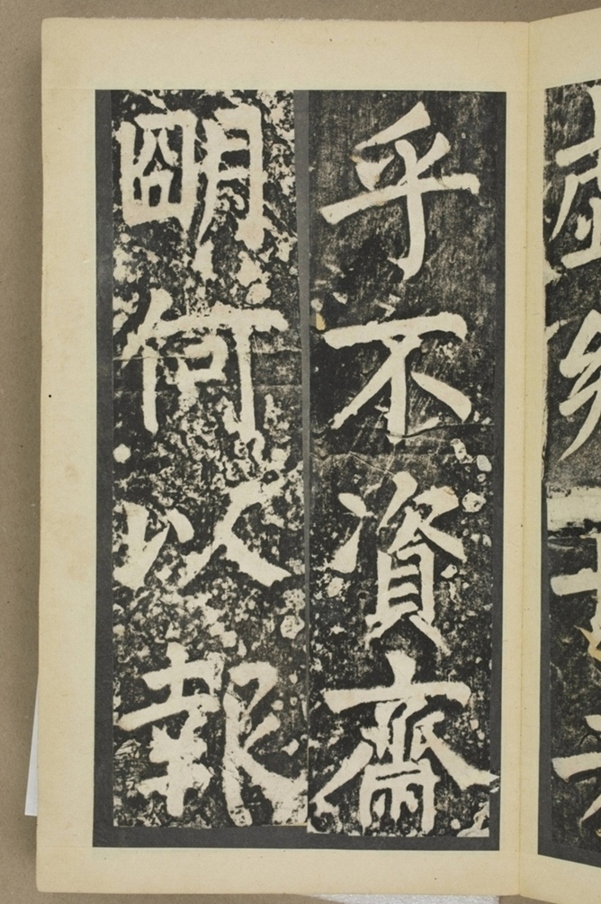 乎不資齋
朙何以報